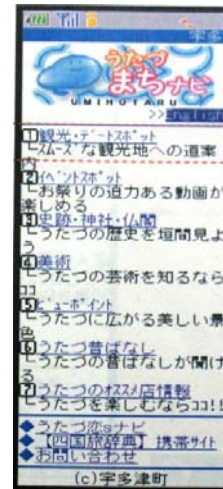 うたづ
まちナビ
UMIHOTARU
>>English
1観光・デートスポット
スムーズな観光地への道案
内
2イベントスポット
お祭りの迫力ある動画が
楽しめる
3史跡・神社・仏閣
うたづの歴史を垣間見よ
う
4美術
うたづの芸術を知るなら
ココ
5ビューポイント
うたづに広がる美しい景
色
6うたづ昔ばなし
うたづの昔ばなしが聞け
る
7うたづのオススメ店情報
うたづを楽しむならココ!!
◆うたづ恋sナビ
◆【四国旅辞典】携帯サイト
◆お問い合わせ
(c)宇多津町